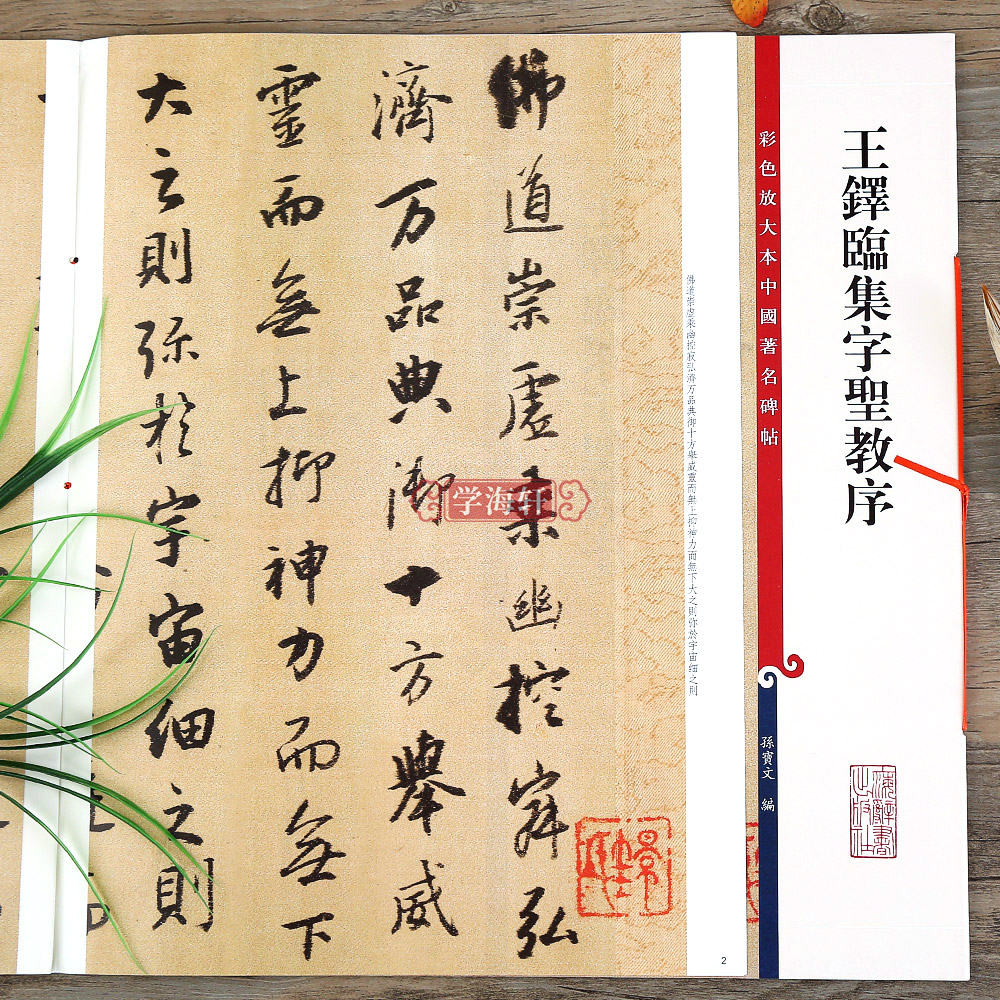 王鐸臨集字聖教序
彩色放大本中國著名碑帖
孫寶文 編
上海辭書出版社
佛道崇虛乘幽控寂弘濟万品典御十方舉威靈而無上抑神力而無下大之則弥於宇宙細之則
佛道崇虛乘幽控寂弘
濟万品典御十方舉威
靈而無上抑神力而無下
大之則弥於宇宙細之則
学海轩
2